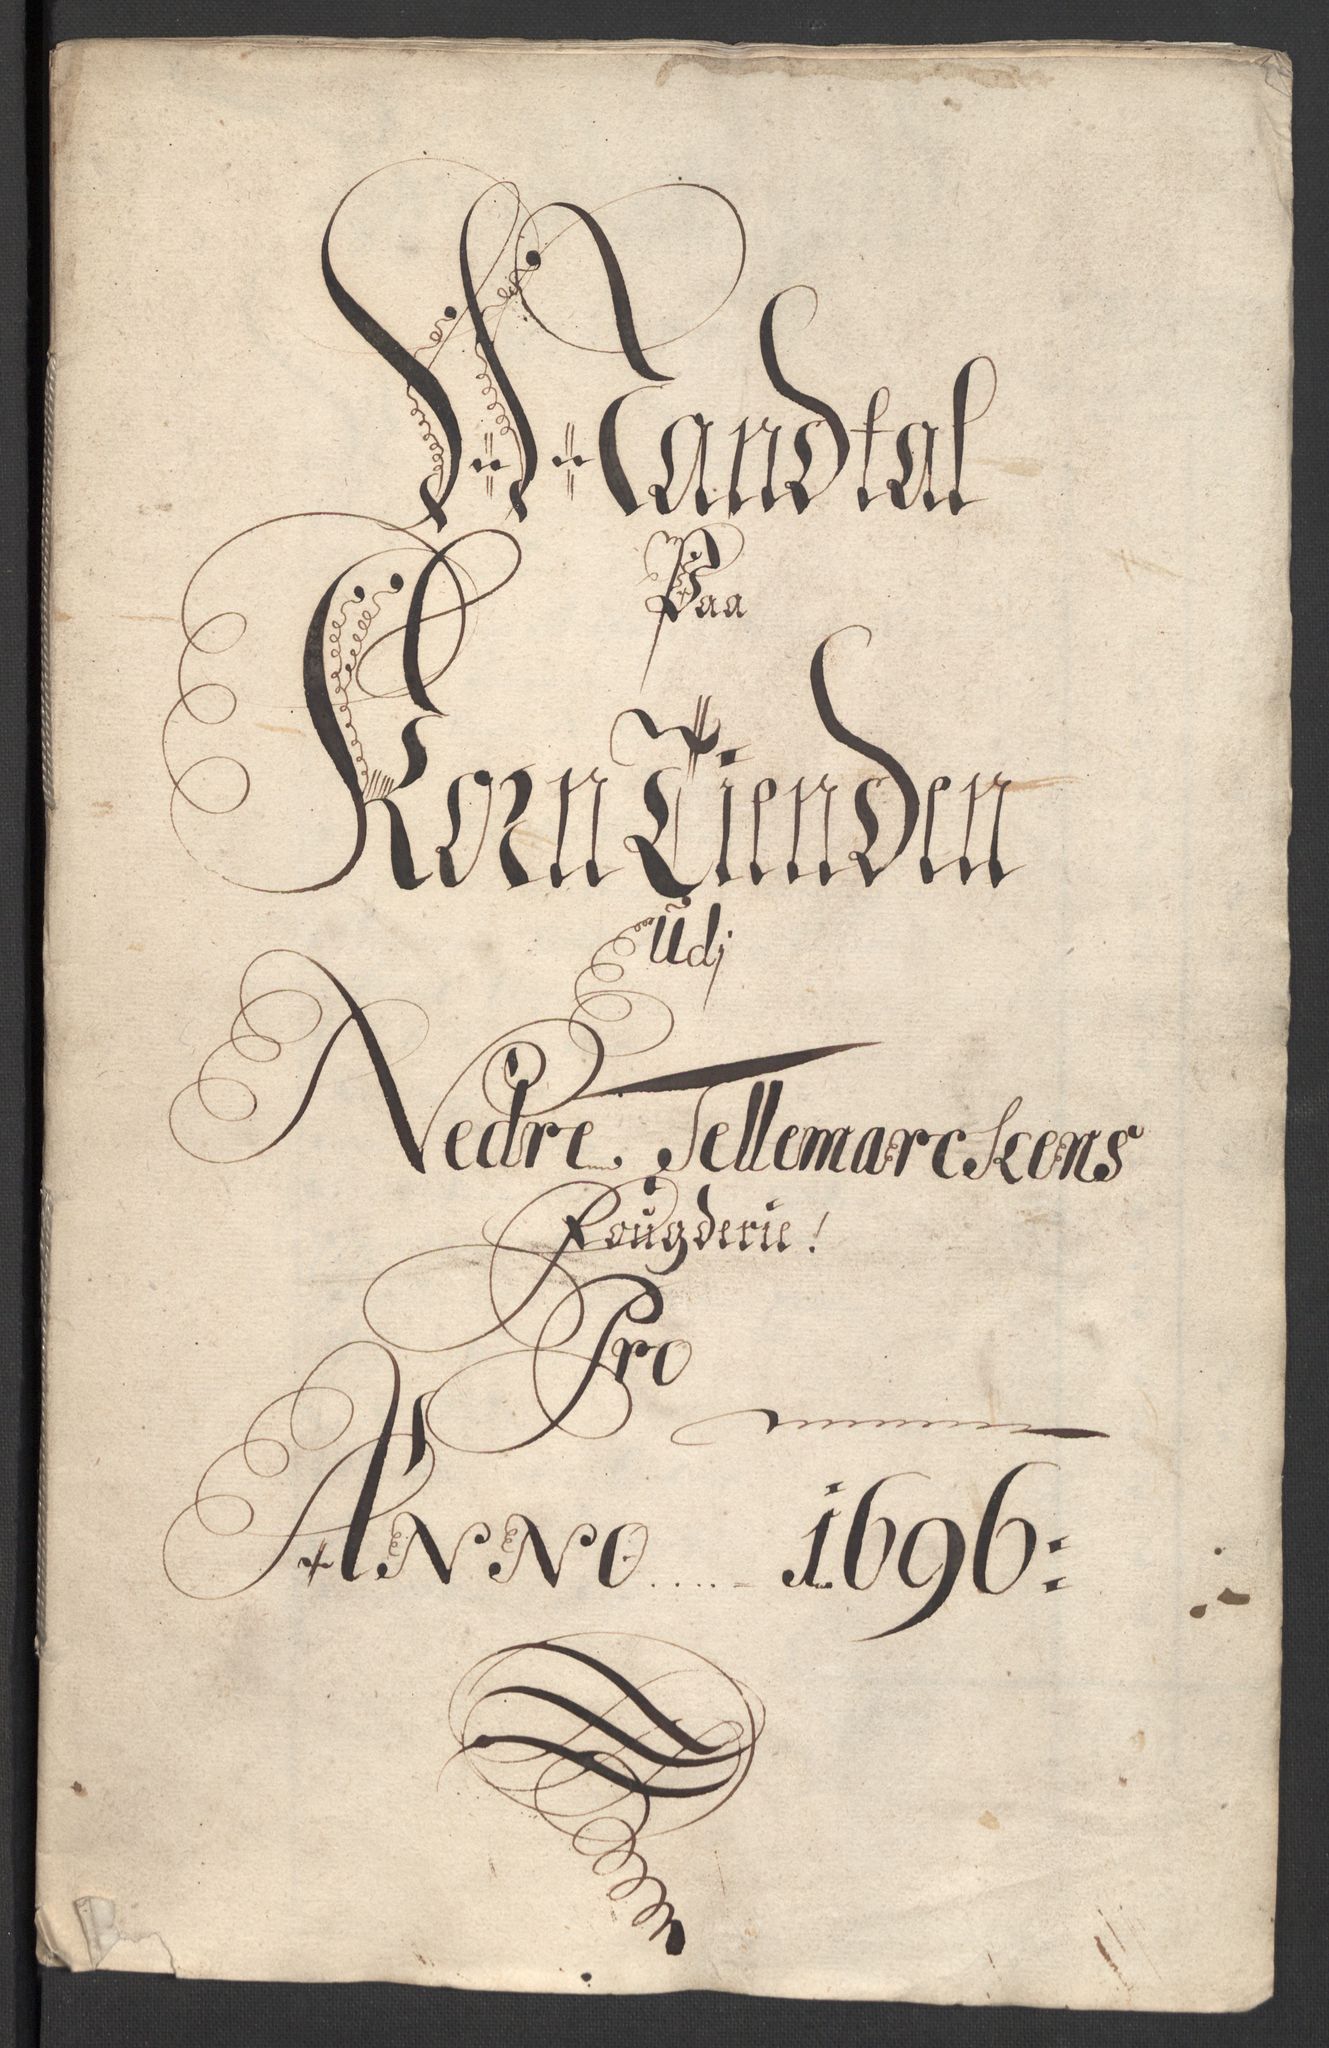 Mandtal
Paa
Korn Tienden
Udj
Nedre Tellemarckens
Fougderie!
Pro
ANNO .... - 1696: